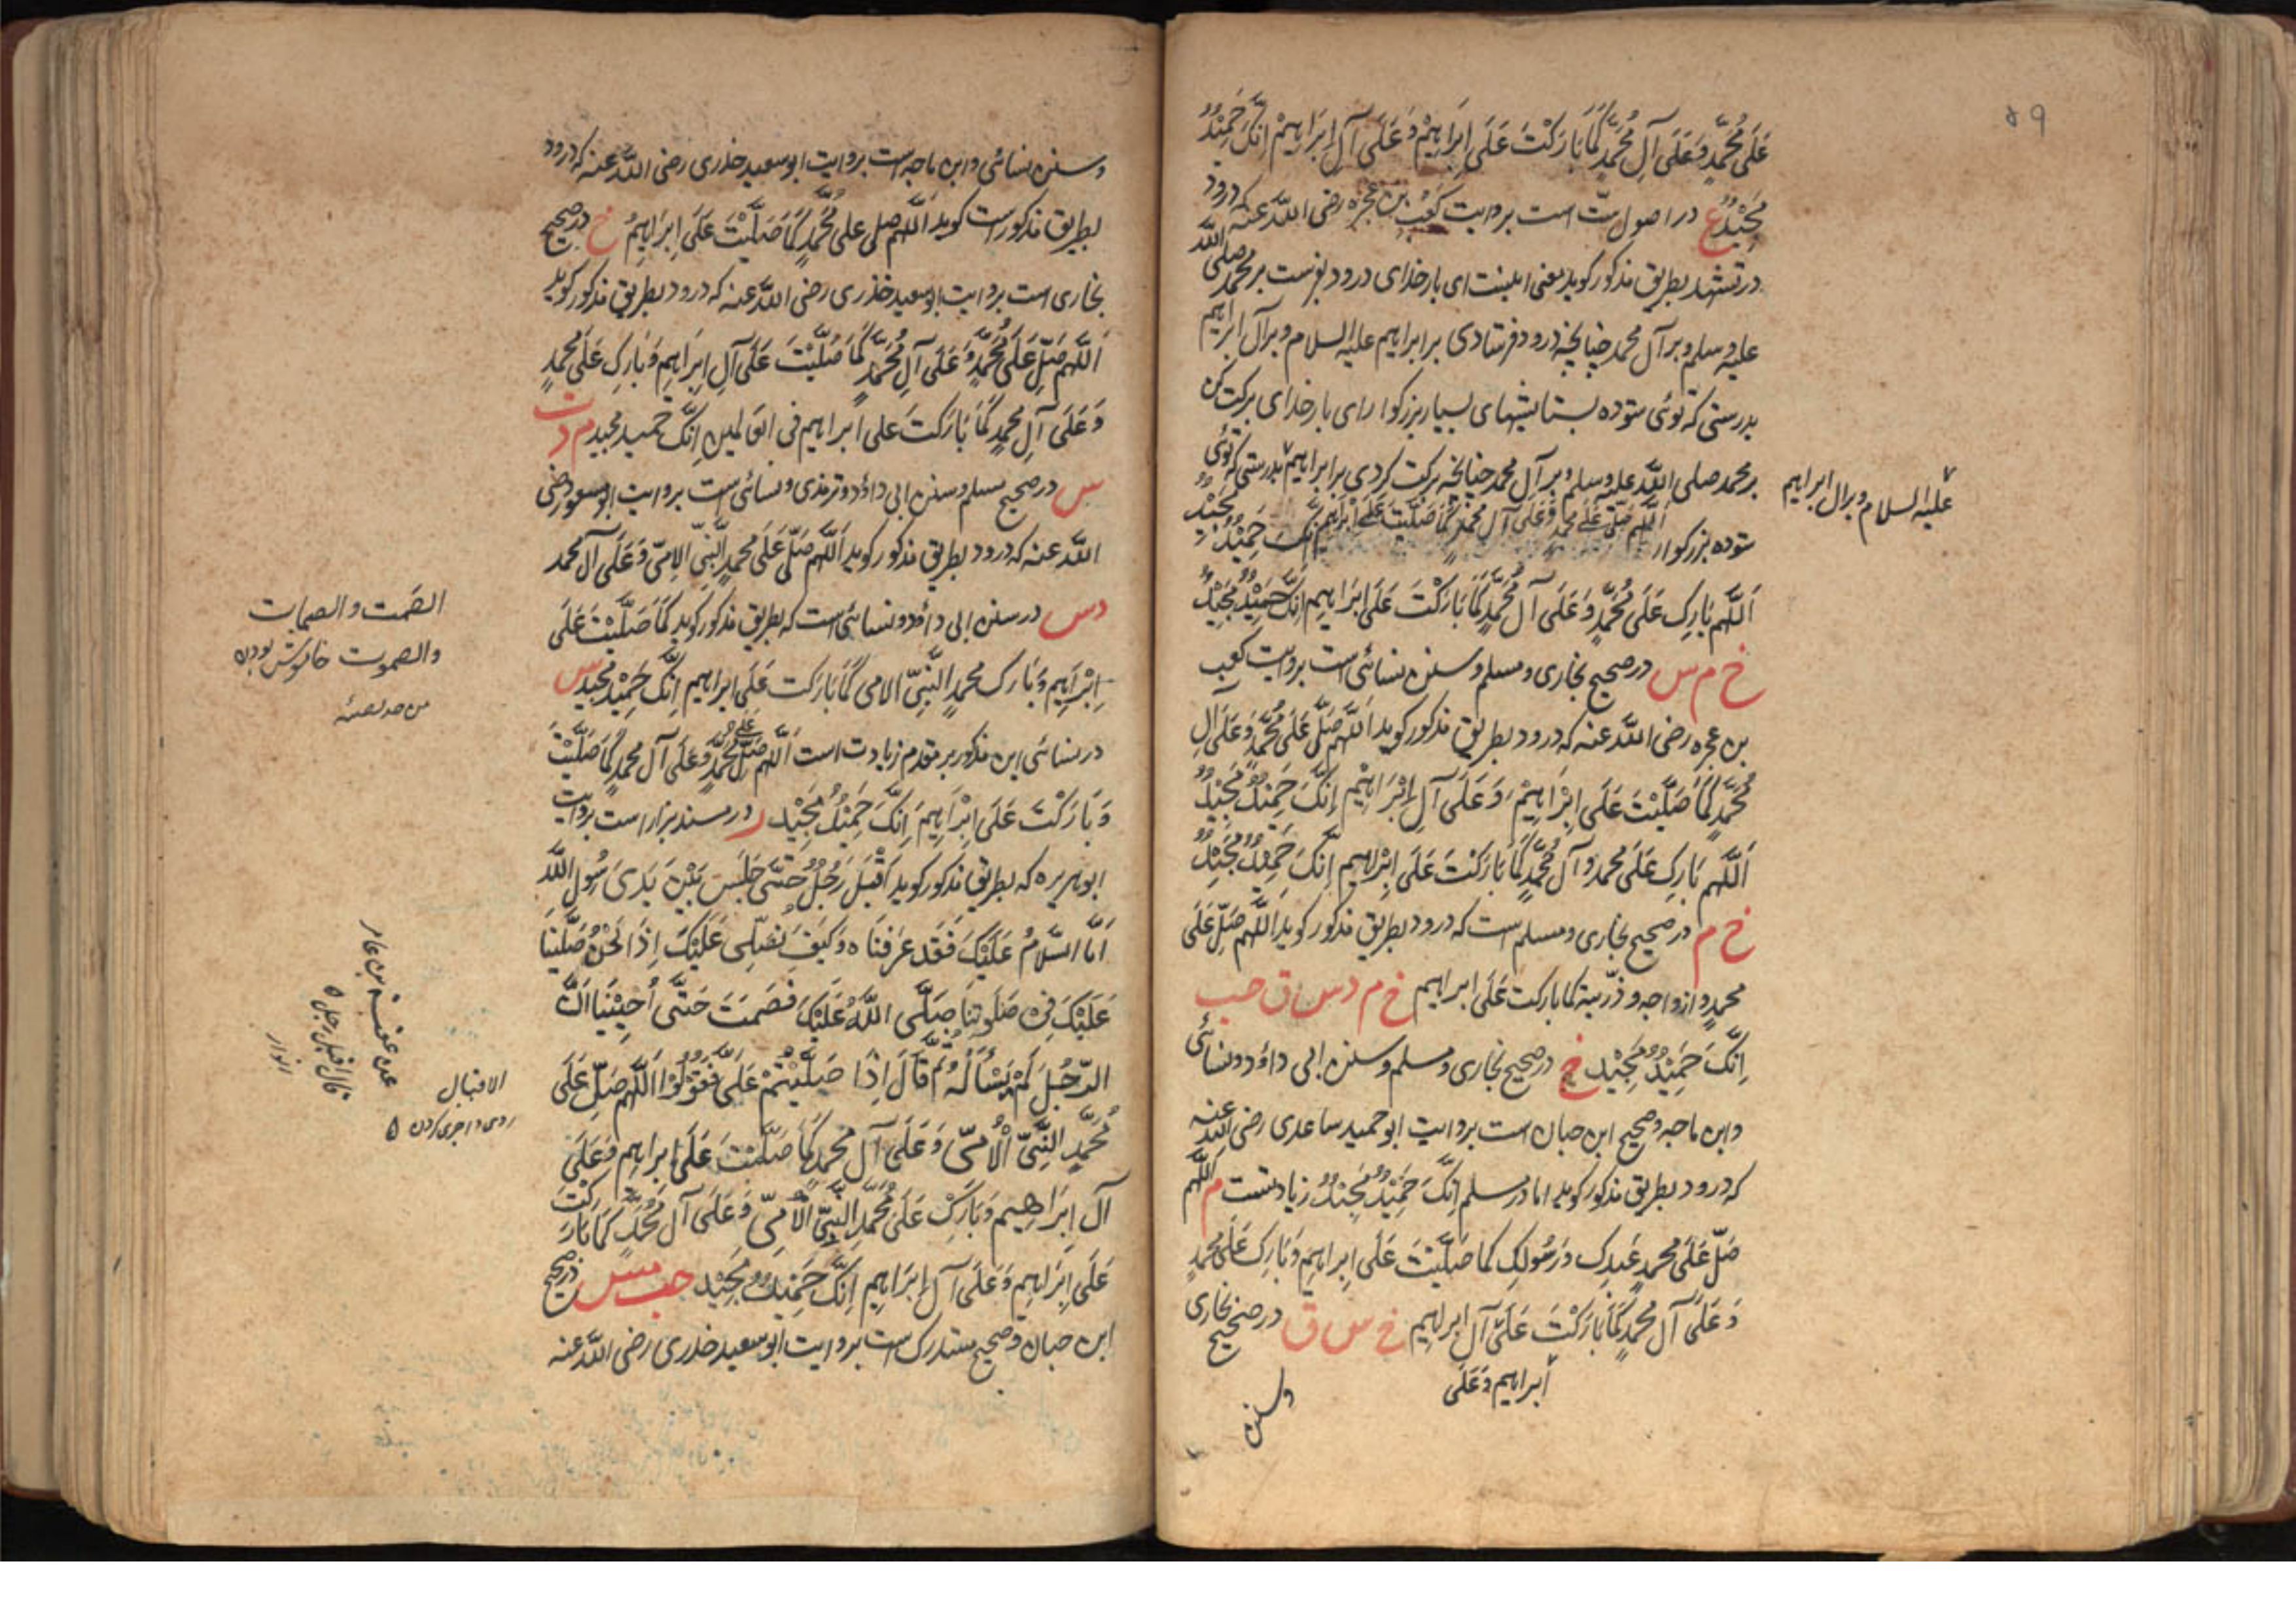 ۵۹
عَلَى مُحَمَّدٍ وَعَلَى آلِ مُحَمَّدٍ كَمَا بَارَكْتَ عَلَى اِبْرَاهِيْمَ وَعَلَى آلِ اِبْرَاهِيْمَ اِنَّكَ حَمِيْدٌ
مَجِيْدٌ ع در اصول ستّ است بروایت کعب بن عجره رضی اللّٰه عنه که درود
در تشهد بطریق مذکور گوید یعنی اینست ای بار خدای درود بفرست بر محمد صلی اللّٰه
علیه وسلم و بر آل محمد چنانچه درود فرستادی بر ابراهیم علیه السلام و بر آل ابراهیم
بدرستی که توئی ستوده بستایشهای بسیار بزرگوار ای بار خدای برکت کن
بر محمد صلی اللّٰه علیه وسلم و بر آل محمد چنانچه برکت کردی بر ابراهیم بدرستی که توئی
علیه السلام و بر ال ابراهیم
ستوده بزرگوار اَللّٰهم صَلِّ عَلَى محمدٍ وَعَلَى آل محمدٍ كَمَا صَلَّيْتَ عَلَى اِبْرَاهِيم اِنَّكَ حَمِيْدٌ مَجِيْدٌ
اَللّٰهم بَارِك عَلَى مُحَمَّدٍ وَعَلَى آل مُحَمَّدٍ كَمَا بَارَكْتَ عَلَى اِبْرَاهِيم اِنَّكَ حَمِيْدٌ مَجِيْدٌ
خ م س در صحیح بخاری و مسلم و سنن نسائی است بروایت کعب
بن عجره رضی اللّٰه عنه که درود بطریق مذکور گوید اَللّٰهم صَلِّ عَلَى مُحَمَّدٍ وَعَلَى آلِ
مُحَمَّدٍ كَمَا صَلَّيْتَ عَلَى اِبْرَاهِيْمَ وَعَلَى آلِ اِبْرَاهِيْمَ اِنَّكَ حَمِيْدٌ مَجِيْدٌ
اَللّٰهم بَارِك عَلَى محمد و آل مُحَمَّدٍ كَمَا بَارَكْتَ عَلَى اِبْرَاهِيم اِنَّكَ حَمِيْدٌ مَجِيْدٌ
خ م در صحیح بخاری و مسلم است که درود بطریق مذکور گوید اَللّٰهم صَلِّ عَلَى
محمدٍ و ازواجه و ذرّیته کما بارکت عَلَى ابراهیم خ م د س ق حب
اِنَّكَ حَمِيْدٌ مَجِيْد خ در صحیح بخاری و مسلم و سنن ابی داؤد و نسائی
وابن ماجه و صحیح ابن حبان است بروایت ابو حمید ساعدی رضی اللّٰه عنه
که درود بطریق مذکور گوید اما در مسلم اِنَّكَ حَمِيْدٌ مَجِيْدٌ زیادتست م اللّٰهم
صَلِّ عَلَى محمدٍ عَبدِك وَرَسُولِك كما صَلَّيْتَ عَلَى اِبراهِيم وَبَارِك عَلَى محمدٍ
وَعَلَى آل محمدٍ كَمَا بَارَكْتَ عَلَى آلِ ابراهيم خ س ق در صحیح بخاری
ابراهیم وَعَلَى
وسنن
وسنن نسائی و ابن ماجه است بروایت ابو سعید خدری رضی اللّٰه عنه که درود
بطریق مذکور است گوید اَللّٰهم صلی علی مُحَمَّدٍ كَمَا صَلَّيْتَ عَلَى اِبْرَاهِيْمُ خ در صحیح
بخاری است بروایت ابو سعید خدری رضی اللّٰه عنه که درود بطریق مذکور گوید
اَللّٰهم صَلِّ عَلَى مُحَمَّدٍ وَعَلَى آلِ مُحَمَّدٍ كَمَا صَلَّيْتَ عَلَى آلِ اِبْرَاهِيم وَبَارِك عَلَى محمدٍ
وَعَلَى آلِ محمدٍ كَمَا بَارَكْتَ على ابراهيم فى العالمين اِنَّكَ حميد مجيد م د ت
س در صحیح مسلم و سنن ابی داؤد و ترمذی و نسائی است بروایت ابو مسعود رضی
اللّٰه عنه که درود بطریق مذکور گوید اَللّٰهم صَلِّ عَلَى محمدٍ النَّبِيّ الامِيّ وَعَلَى آل محمد
د س در سنن ابی داؤد و نسائی است که بطریق مذکور گوید كَمَا صَلَّيْتَ عَلَى
اِبْرَاهِيم وَبَارك محمدٍ النَّبِيّ الامى كَمَا بَارَكت عَلَى ابراهيم اِنَّكَ حَمِيْد مجيد س
در نسائی این مذکور بر مقدم زیادت است اَللّٰهم صَلِّ عَلَى مُحَمَّدٍ وَعَلَى آل محمدٍ كَمَا صَلَّيْتَ
وَبَارَكْتَ عَلَى اِبْرَاهِيمَ اِنَّكَ حَمِيْدٌ مَجِيْد ر در مسند بزار است بروایت
ابوهریره که بطریق مذکور گوید اَقْبَلَ رَجُلٌ حَتّٰى جَلَسَ بَيْنَ يَدَىْ رَسُولِ اللّٰهِ
اَمَّا السَّلَامُ عَلَيْكَ فَقَد عَرَفْنَاه وَكَيْفَ نُصَلِّى عَلَيْكَ اِذَا نَحْنُ صَلَّيْنَا
عَلَيْكَ فِى صَلٰوتِنَا صَلَّى اللّٰهُ عَلَيْكَ فَصَمَتَ حَتّٰى اَحْبَبْنَا اَنَّ
الرَّجُلَ لَمْ يَسْاَلْهُ ثُمَّ قَالَ اِذَا صَلَّيْتُمْ عَلَىَّ فَقُوْلُوْا اَللّٰهم صَلِّ عَلَى
مُحَمَّدٍ النَّبِيّ الْاُمِّيّ وَعَلَى آل محمد كَمَا صَلَّيْتَ عَلَى ابراهيم وَعَلَى
آل اِبْرَاهِيم وَبَارِكْ عَلَى مُحَمَّدٍ النَّبِيّ الْاُمِّيّ وَعَلَى آل مُحَمَّدٍ كَمَا بَارَكْتَ
عَلَى اِبْرَاهِيم وَعَلَى آل اِبْرَاهِيم اِنَّكَ حَمِيْدٌ مَجِيْد حب مس در صحیح
ابن حبان و صحیح مستدرک است بروایت ابو سعید خدری رضی اللّٰه عنه
الصَمت والصمات
والصموت خاموش بودن
الاقبال
قال اقبل رجل ۵